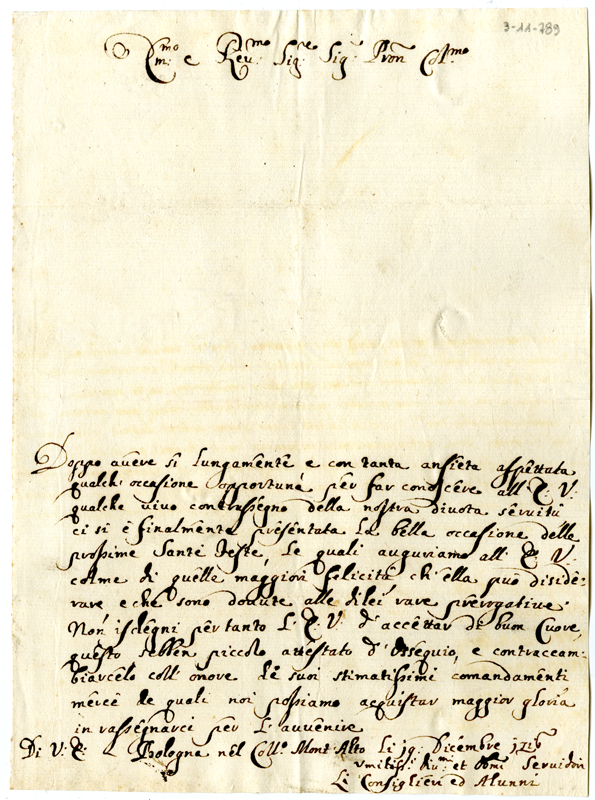 3-11-789
Em:mo e Rev:mo Sig:re Sig: Pron Col:mo
Doppo avere sì lungamente e con tanta ansietà aspettata
qualch' occasione opportuna per far conoscere all' E: V:
qualche vivo contrassegno della nostra divota servitù
ci si è finalmente presentata la bella occasione delle
prossime Sante Feste, le quali auguriamo all' E: V:
colme di quelle maggiori felicità ch' ella può diside-
rare e che sono dovute alle di lei rare prerogative.
Non isdegni per tanto L' E: V: d' accettar di buon Cuore,
questo sebben piccolo attestato d' Ossequio, e contraccam-
biarcelo coll' onore de suoi stimatissimi comandamenti
mercè de quali noi possiamo acquistar maggior gloria
in rassegnarci per l' avvenire
Di V: E: Bologna nel Coll:o Mont' Alto li 19: Dicembre
Umiliss:i Div:mi et Obmi Servidori
Li Consiglieri ed Alunni